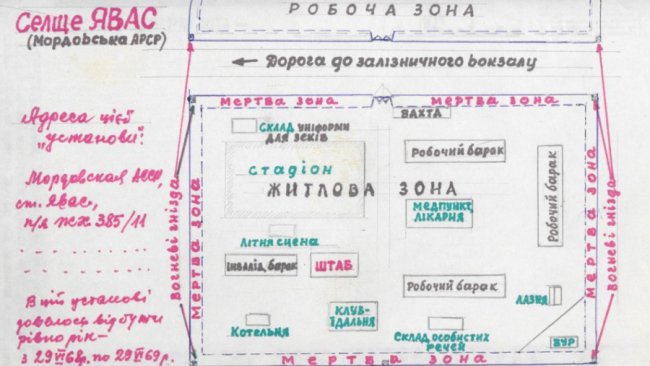 Селще ЯВАС
(Мордовська АРСР)
РОБОЧА ЗОНА
← Дорога до залізничного вокзалу
Адреса цієї
„установи":
Мордовская АССР,
ст. Явас,
п/я ЖХ 385/11
В цій установі
довелось відбути
рівно рік—
з 29 VI 68р. по 29 VI 69р.
Вогневі гнізда
МЕРТВА ЗОНА
МЕРТВА ЗОНА
МЕРТВА ЗОНА
СКЛАД УНІФОРМИ
ДЛЯ ЗЕКІВ
ВАХТА
СТАДІОН
ЖИТЛОВА ЗОНА
Робочий барак
Робочий барак
МЕДПУНКТ,
ЛІКАРНЯ
ЛІТНЯ СЦЕНА
Інвалід. барак
ШТАБ
Робочий барак
ЛАЗНЯ
Котельня
КЛУБ-
ЇДАЛЬНЯ
Склад особистих
речей
БУР
МЕРТВА ЗОНА
МЕРТВА ЗОНА
Вогневі гнізда